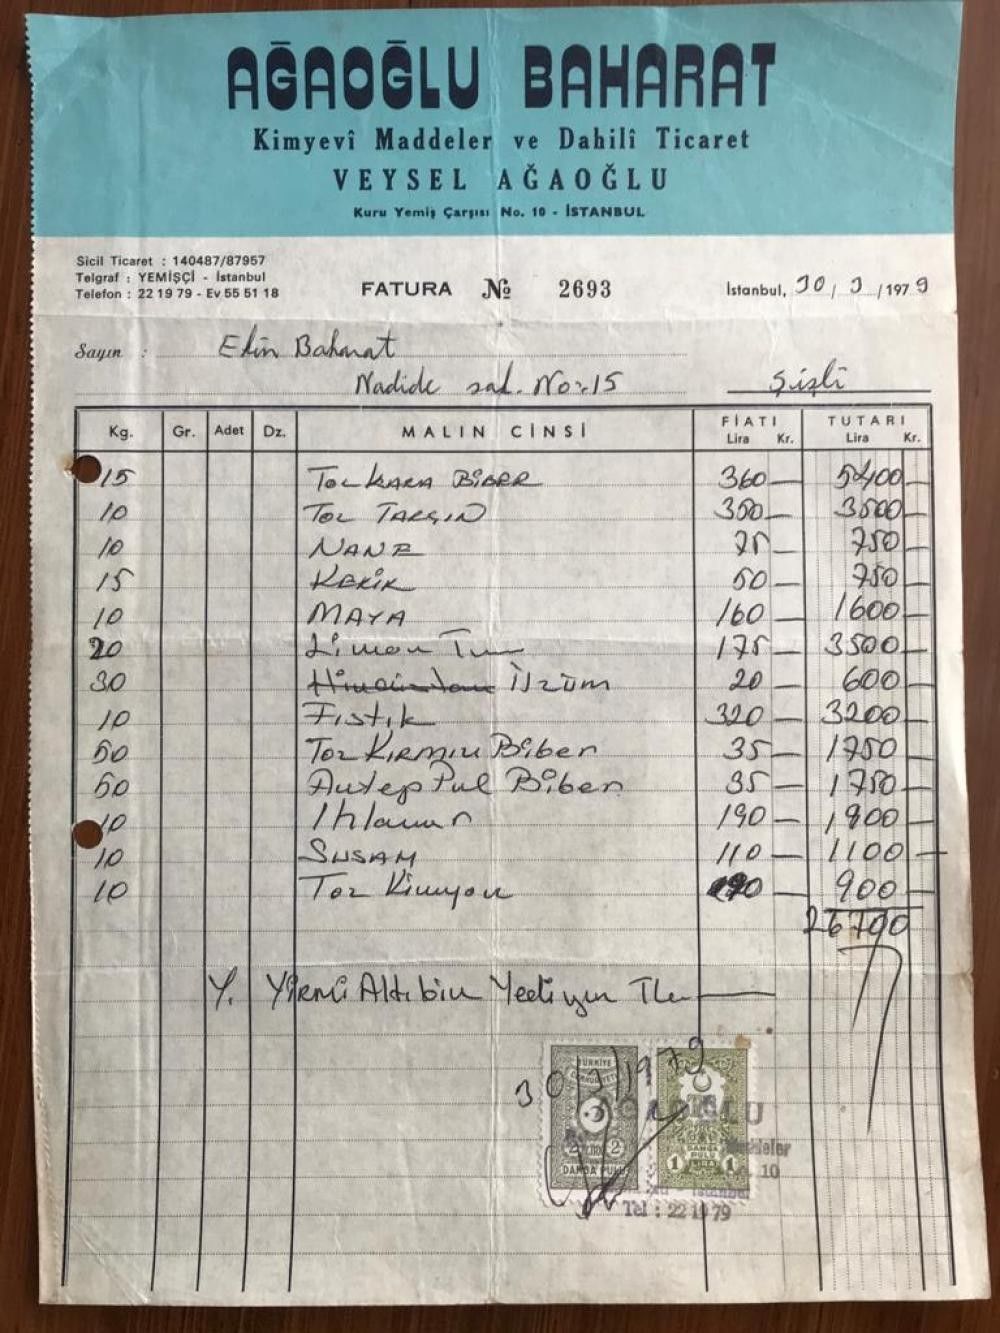 AĞAOĞLU BAHARAT
Kimyevî Maddeler ve Dahilî Ticaret
VEYSEL AĞAOĞLU
Kuru Yemiş Çarşısı No. 10 - İSTANBUL
Sicil Ticaret : 140487/87957
Telgraf : YEMİŞÇİ - İstanbul
Telefon : 22 19 79 - Ev 55 51 18
FATURA № 2693
İstanbul, 30/3/1979
Sayın : Ekin Baharat
Nadide sok. No:15 Şişli
Kg. Gr. Adet Dz. MALIN CİNSİ FİATI Lira Kr. TUTARI Lira Kr.
15 Toz KARA BİBER 360 — 5400 —
10 Toz TARÇIN 350 — 3500 —
10 NANE 75 — 750 —
15 KEKİK 50 — 750 —
10 MAYA 160 — 1600 —
20 Limon Tuzu 175 — 3500 —
30 ÜZÜM 20 — 600 —
10 Fıstık 320 — 3200 —
50 Toz Kırmızı Biber 35 — 1750 —
50 Antep Pul Biber 35 — 1750 —
10 Ihlamur 190 — 1900 —
10 SUSAM 110 — 1100 —
10 Toz Kimyon 90 — 900 —
26700
Y. Yirmi Altı bin Yediyüz TL
30/3/1979
TÜRKİYE CUMHURİYETİ
2 LİRA 2
DAMGA PULU
DAMGA PULU
1 LİRA 1
AĞAOĞLU
Maddeler
10
İstanbul
Tel : 22 19 79